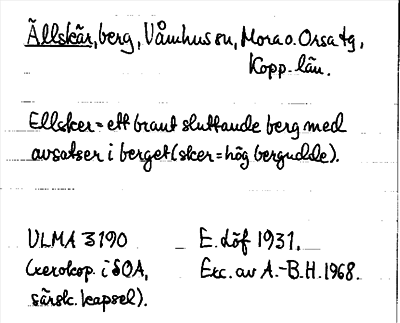 Ällskär, berg, Våmhus sn, Mora o. Orsa tg,
Kopp. län.
Ellsker = ett brant sluttande berg med
avsatser i berget (sker = hög bergudde).
ULMA 3190
(xerokop. i SOA,
särsk. kapsel).
E. Löf 1931.
Exc. av A.-B.H. 1968.